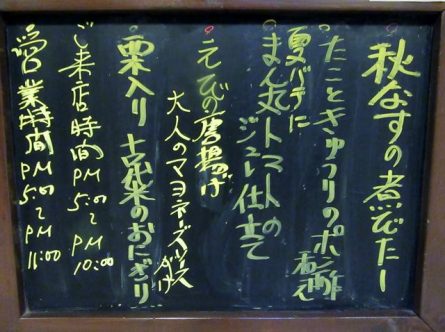 秋なすの煮びたし
たこときゅうりのポン酢
和え
夏バテに
まん丸トマトの
ジュレ仕立て
えびの唐揚げ
大人のマヨネーズソース
がけ
栗入り 古代米のおにぎり
ご来店時間 PM 5:00〜PM 10:00
営業時間 PM 5:00〜PM 11:00